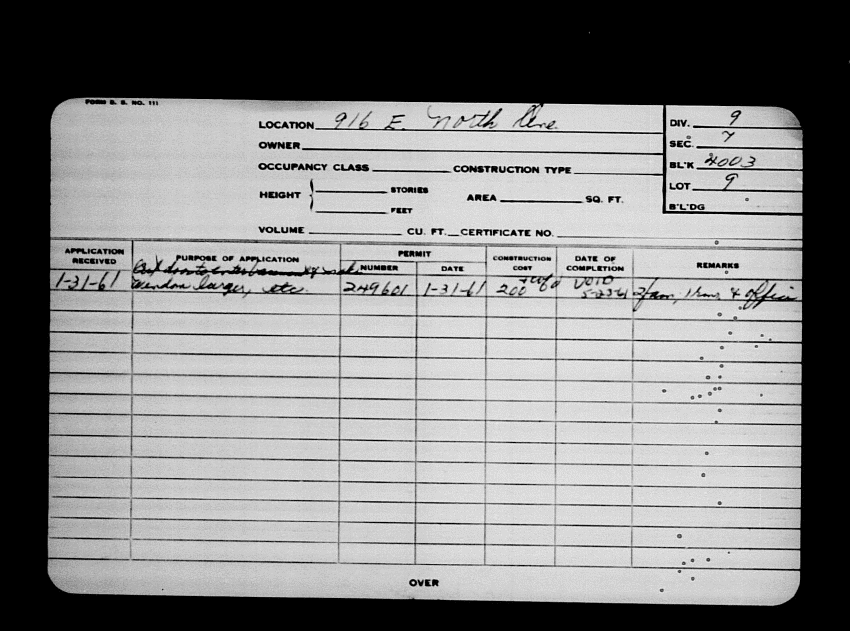 FORM B. S. NO. 111
LOCATION 916 E. North Ave.
DIV. 9
SEC. 7
OWNER
BL'K 4003
OCCUPANCY CLASS CONSTRUCTION TYPE
LOT 9
HEIGHT STORIES AREA SQ. FT.
FEET
B'L'DG
VOLUME CU. FT. CERTIFICATE NO.
APPLICATION RECEIVED PURPOSE OF APPLICATION PERMIT NUMBER DATE CONSTRUCTION COST DATE OF COMPLETION REMARKS
Cut door to enter & make
1-31-61 window larger, etc. 249601 1-31-61 200 VOID 5-23-61 2 fam, & office
OVER